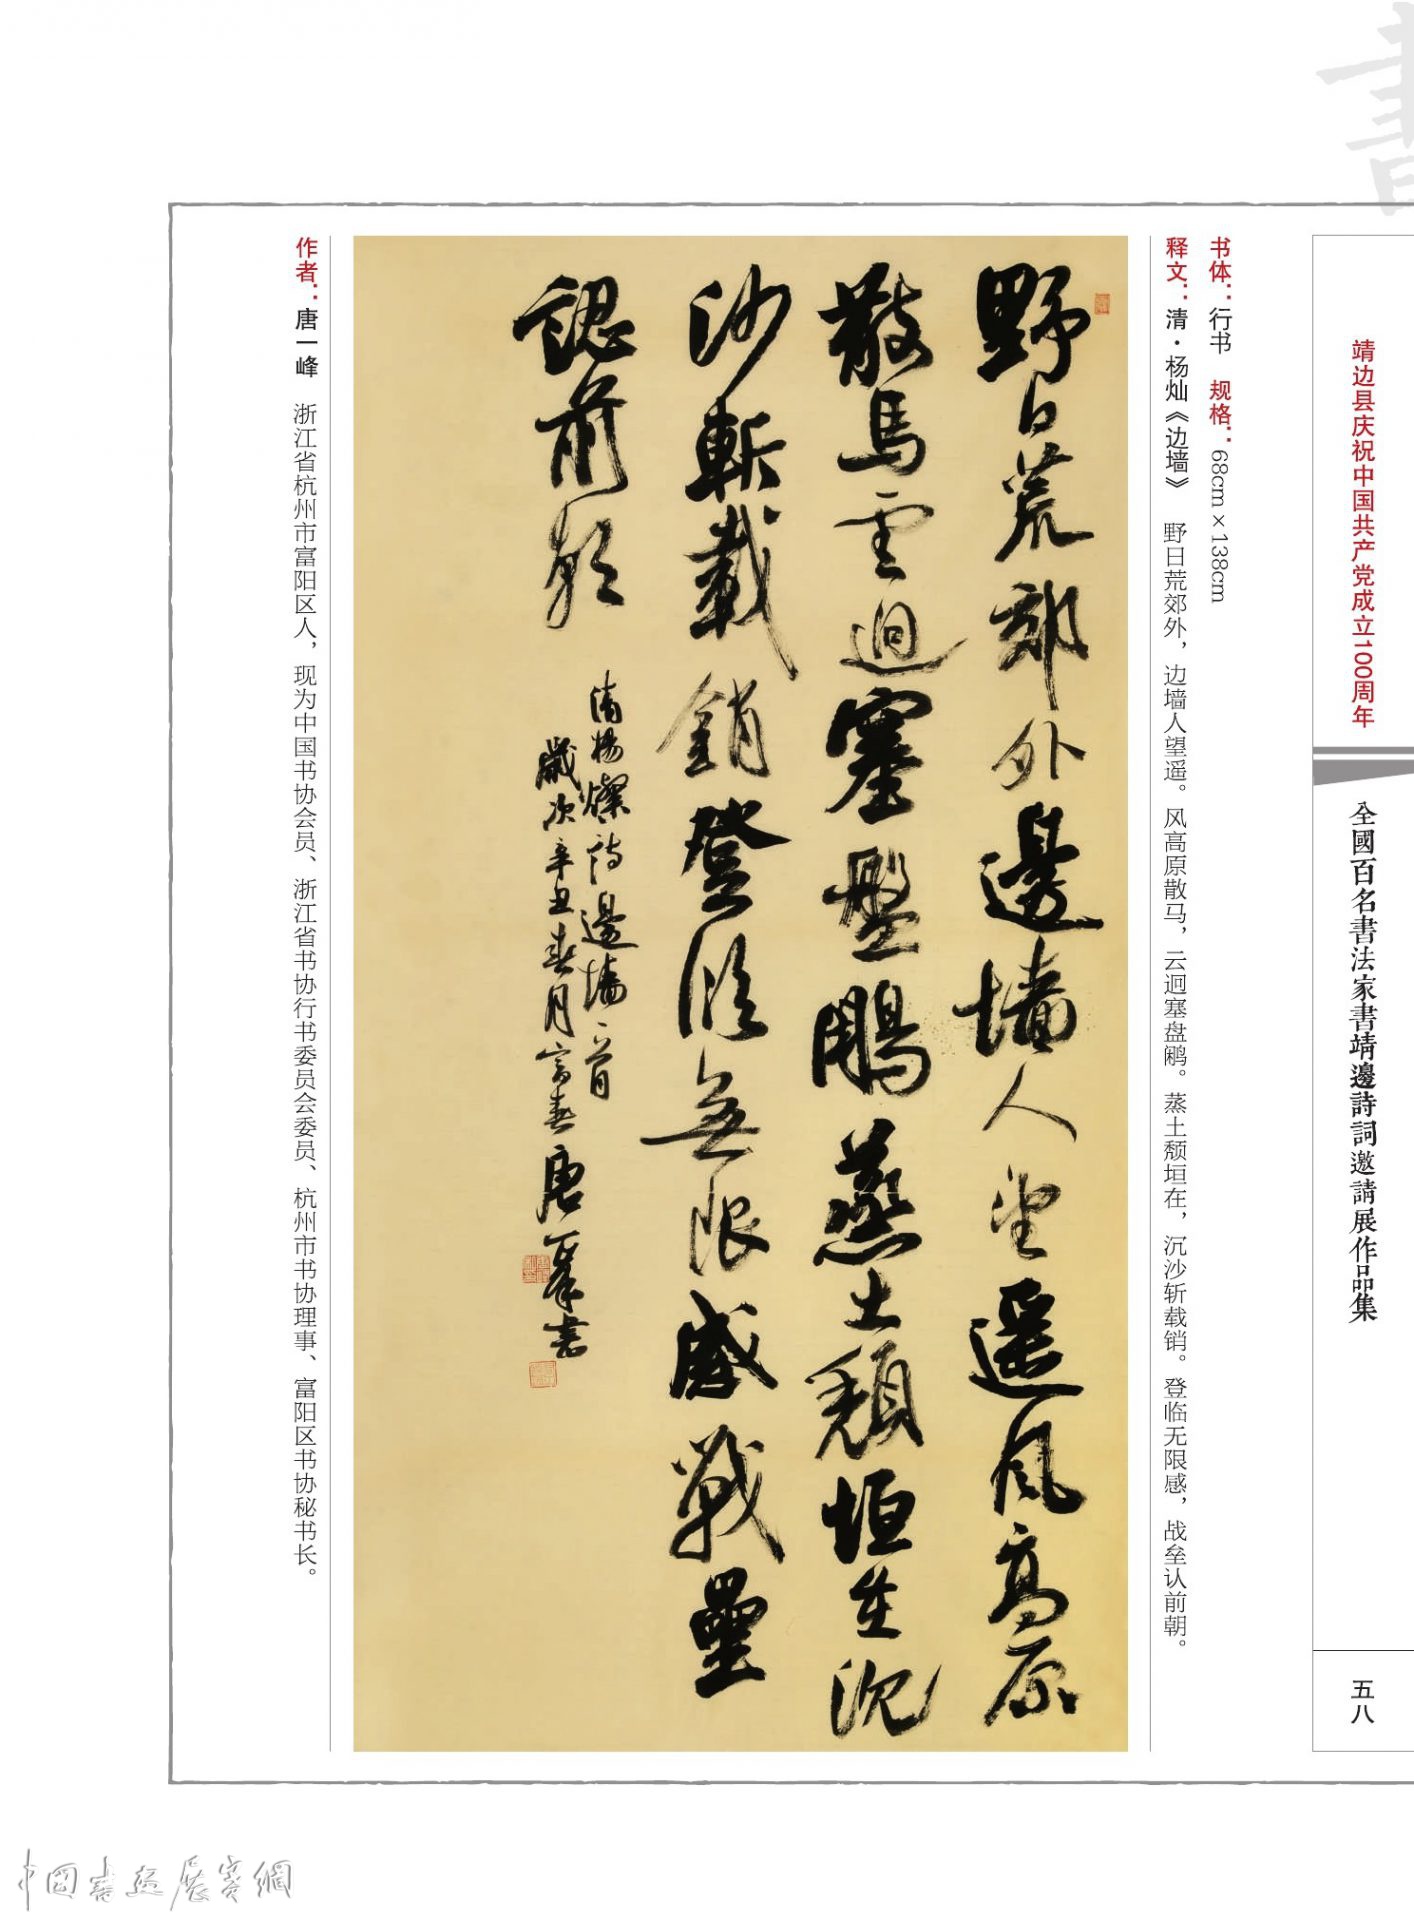 書
靖边县庆祝中国共产党成立100周年
全國百名書法家書靖邊詩詞邀請展作品集
五八
书体：行书　规格：68cm×138cm
释文：清·杨灿《边墙》　野日荒郊外，边墙人望遥。风高原散马，云迥塞盘鹏。蒸土颓垣在，沉沙斩载销。登临无限感，战垒认前朝。
野日荒郊外邊墻人望遥風高原
散馬雲迥塞盤鵰蒸土頹垣在沉
沙斬載銷登臨無限感戰壘
認前朝
清楊燦詩邊墻一首
歲次辛丑春月富春唐一峯書
作者：唐一峰　浙江省杭州市富阳区人，现为中国书协会员、浙江省书协行书委员会委员、杭州市书协理事、富阳区书协秘书长。
中國書画展賽網